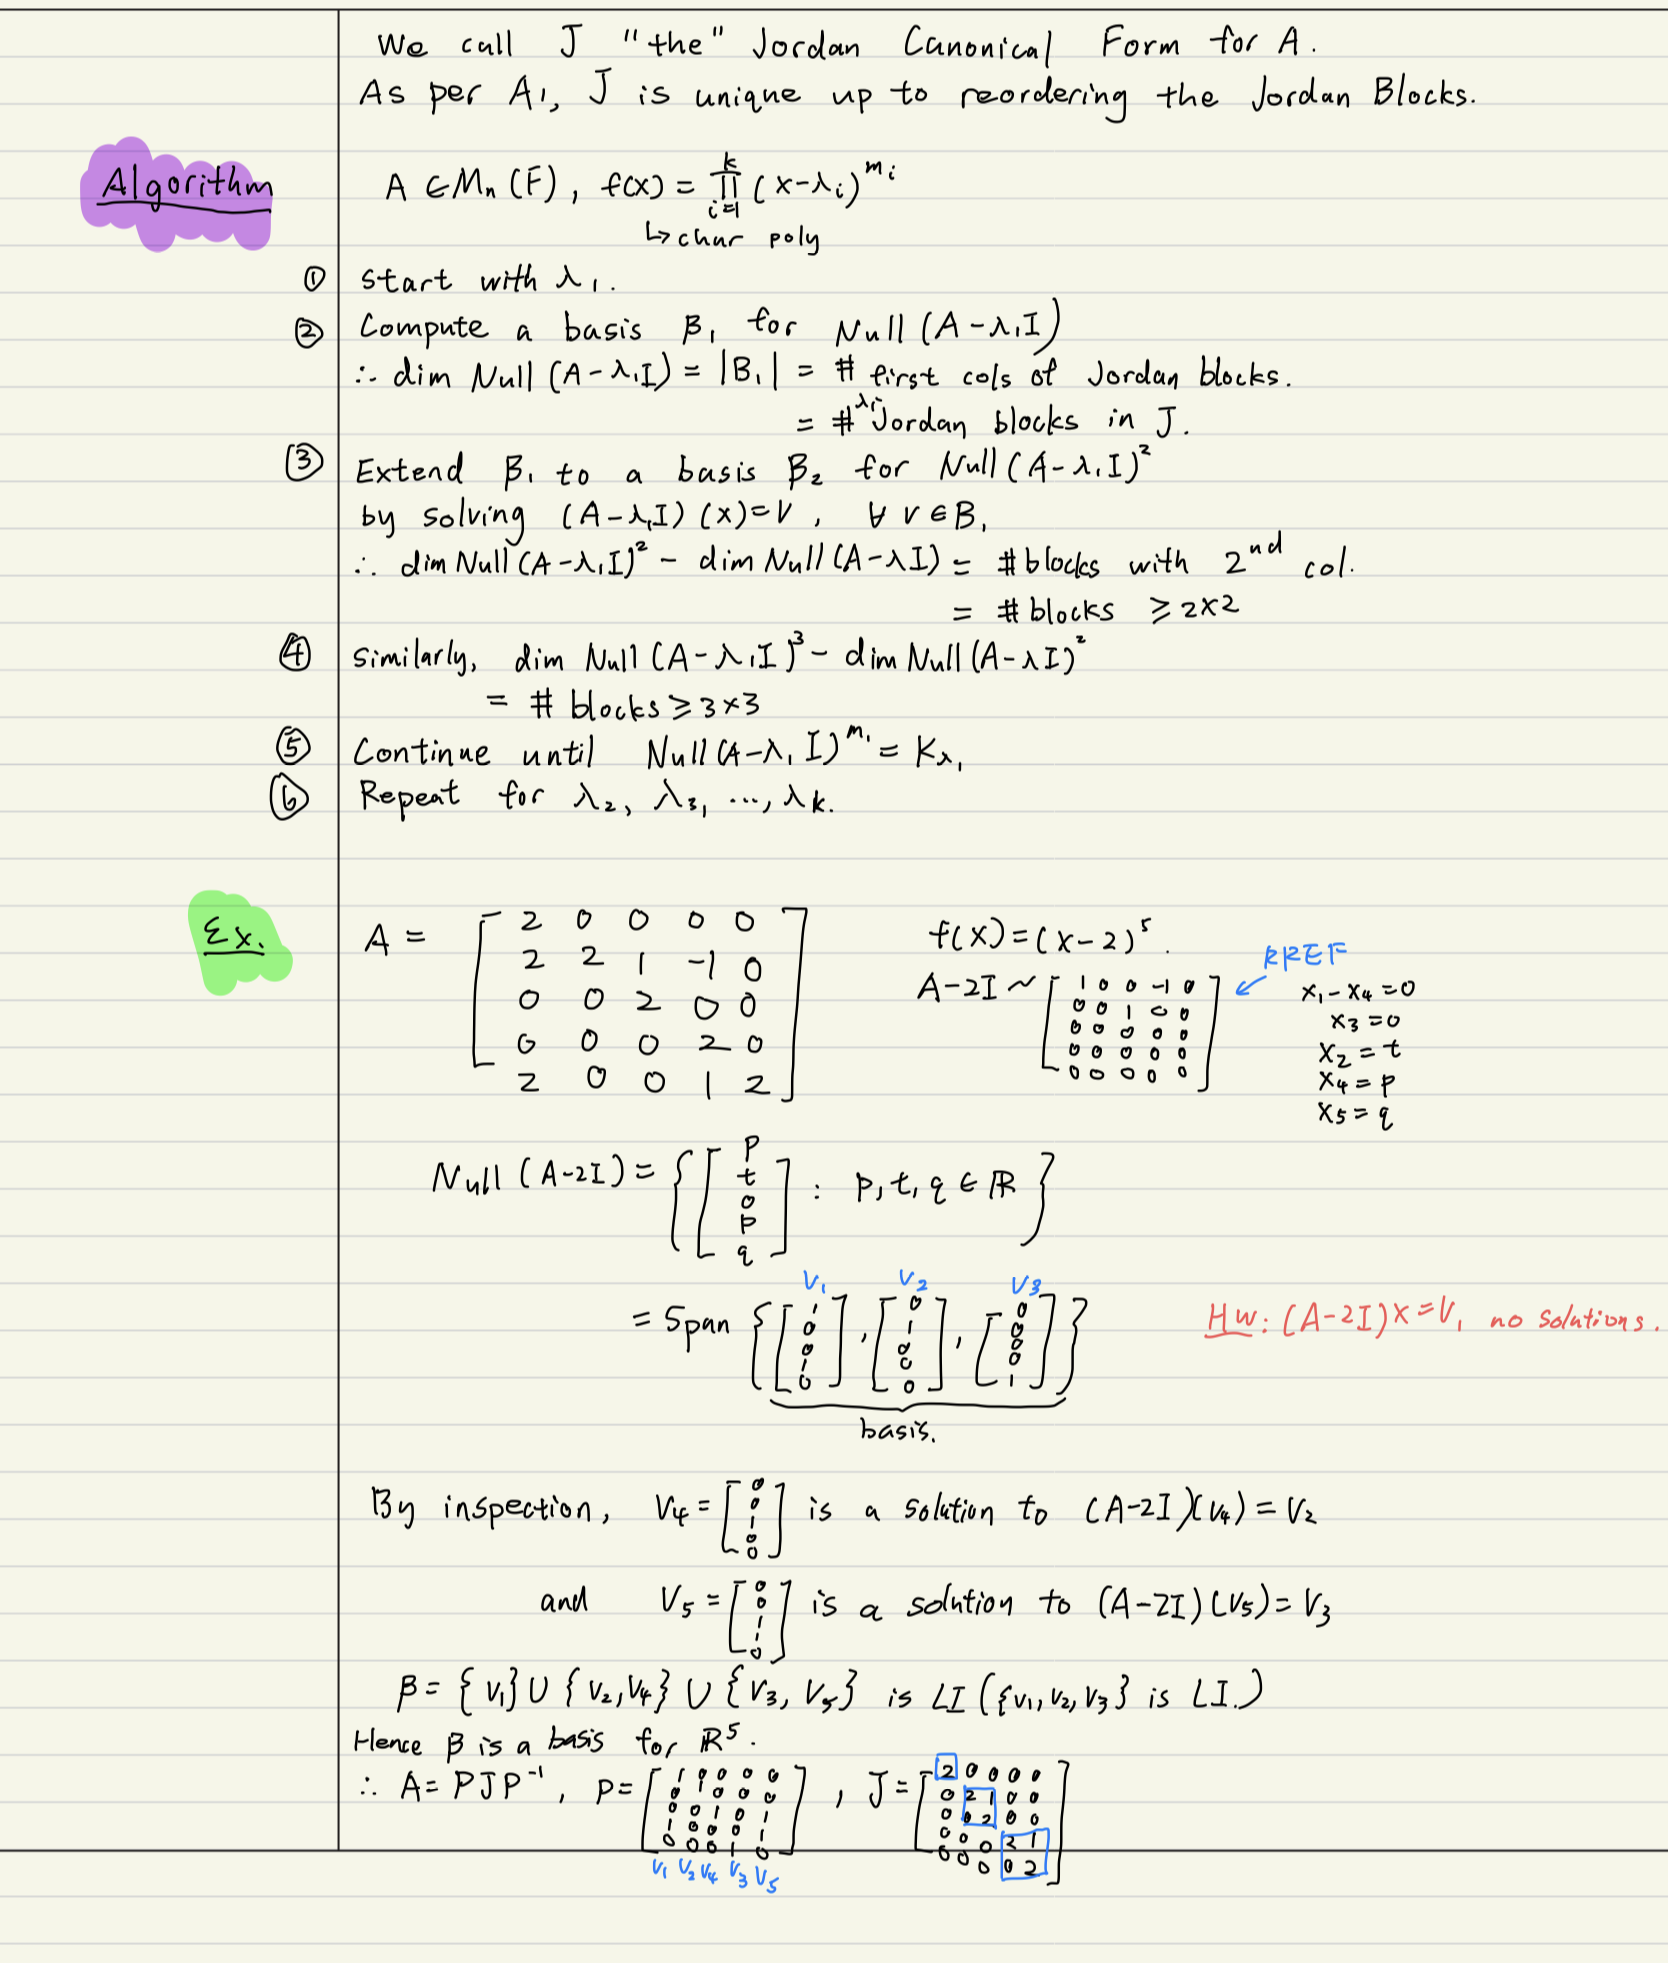 We call J "the" Jordan Canonical Form for A.
As per A1, J is unique up to reordering the Jordan Blocks.
Algorithm
A ∈ Mn (F), f(x) = ∏_{i=1}^{k} (x-λi)^{mi}
↳ char poly
① Start with λ1.
② Compute a basis β1 for Null (A-λ1I)
∴ dim Null (A-λ1I) = |B1| = # first cols of Jordan blocks.
= # λ1 Jordan blocks in J.
③ Extend β1 to a basis β2 for Null (A-λ1I)²
by solving (A-λ1I) (x)=v, ∀ v ∈ B1
∴ dim Null (A-λ1I)² - dim Null (A-λI) = # blocks with 2nd col.
= # blocks ≥ 2x2
④ Similarly, dim Null (A-λ1I)³ - dim Null (A-λI)²
= # blocks ≥ 3x3
⑤ Continue until Null (A-λ1 I)^{m1} = Kλ1
⑥ Repeat for λ2, λ3, ..., λk.
Ex.
A = [ 2 0 0 0 0
2 2 1 -1 0
0 0 2 0 0
0 0 0 2 0
2 0 0 1 2 ]
f(x) = (x-2)⁵.
RREF
A-2I ~ [ 1 0 0 -1 0
0 0 1 0 0
0 0 0 0 0
0 0 0 0 0
0 0 0 0 0 ]
x1 - x4 = 0
x3 = 0
x2 = t
x4 = p
x5 = q
Null (A-2I) = { [ p t 0 p q ] : p, t, q ∈ ℝ }
v1 v2 v3
= Span { [ 1 0 0 1 0 ], [ 0 1 0 0 0 ], [ 0 0 0 0 1 ] }
basis.
HW: (A-2I)x = v1 no solutions.
By inspection, v4 = [ 0 0 1 0 0 ] is a solution to (A-2I)(v4) = v2
and v5 = [ 0 0 1 1 0 ] is a solution to (A-2I)(v5) = v3
β = {v1} ∪ {v2, v4} ∪ {v3, v5} is LI ({v1, v2, v3} is LI.)
Hence β is a basis for ℝ⁵.
∴ A = PJP⁻¹, P = [ 1 0 0 0 0
0 1 0 0 0
0 0 1 0 1
1 0 0 0 1
0 0 0 1 0 ]
, J = [ 2 0 0 0 0
0 2 1 0 0
0 0 2 0 0
0 0 0 2 1
0 0 0 0 2 ]
v1 v2 v4 v3 v5